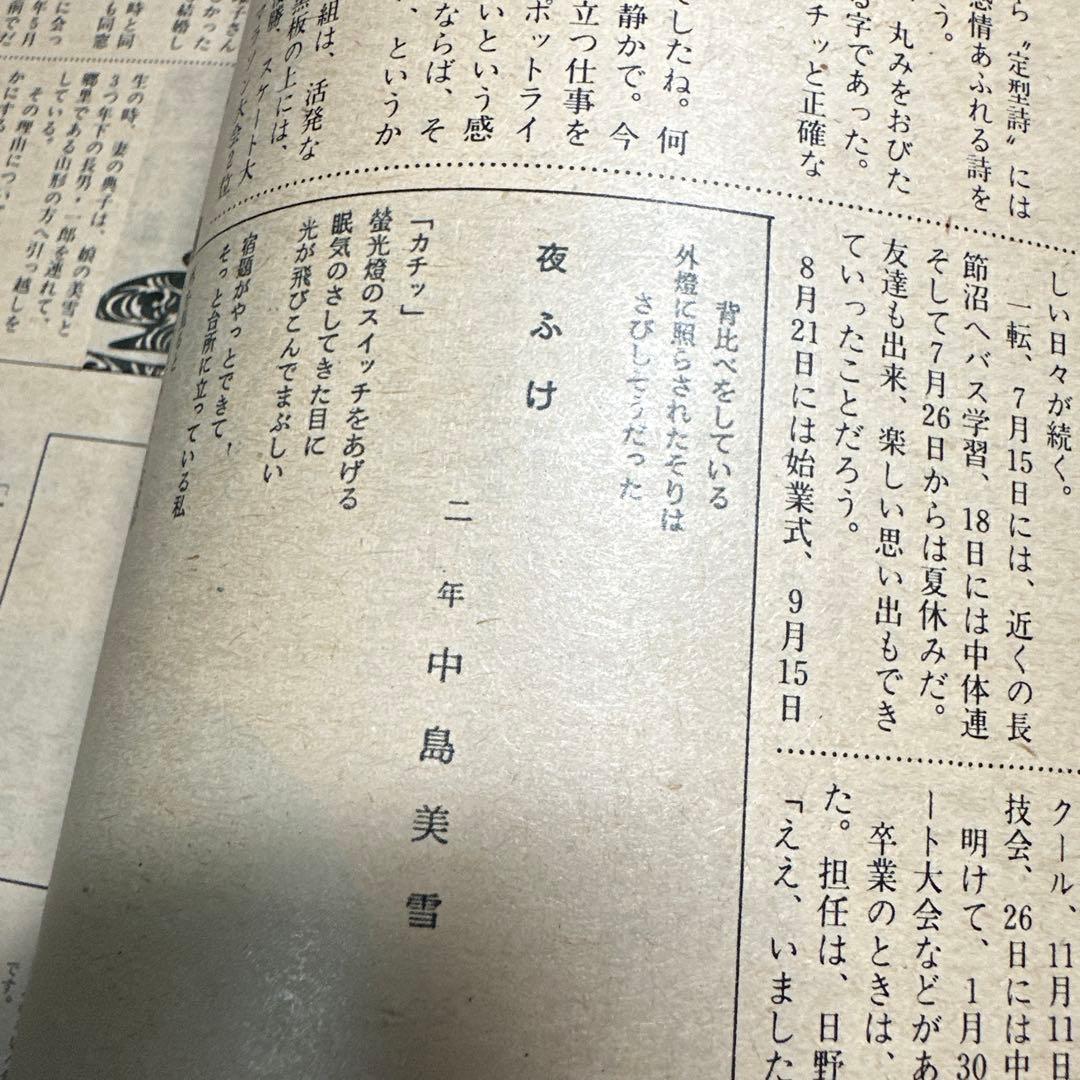 ら〝定型詩〟には
感情あふれる詩を
う。
丸みをおびた
る字であった。
チッと正確な
でしたね。何
静かで。今
立つ仕事を
ポットライ
いという感
ならば、そ
、というか
組は、活発な
黒板の上には、
スケート大
マラソン大会2位
しい日々が続く。
一転、7月15日には、近くの長
節沼へバス学習、18日には中体連
そして7月26日からは夏休みだ。
友達も出来、楽しい思い出もでき
ていったことだろう。
8月21日には始業式、9月15日
背比べをしている
外燈に照らされたそりは
さびしそうだった
夜ふけ
二年 中島美雪
「カチッ」
螢光燈のスイッチをあげる
眠気のさしてきた目に
光が飛びこんでまぶしい
宿題がやっとできて、
そっと台所に立っている私
クール、11月11日
技会、26日には中
明けて、1月30
ート大会などがあ
卒業のときは、
た。担任は、日野
「ええ、いました
子さん
かった
結婚し
時と同
も同窓
に会っ
年5月
前でだ
生の時、
妻の典子は、娘の美雪と
3つ年下の長男・一郎を連れて、
郷里である山形の方へ引っ越しを
している。
その理由について
かにする
です。